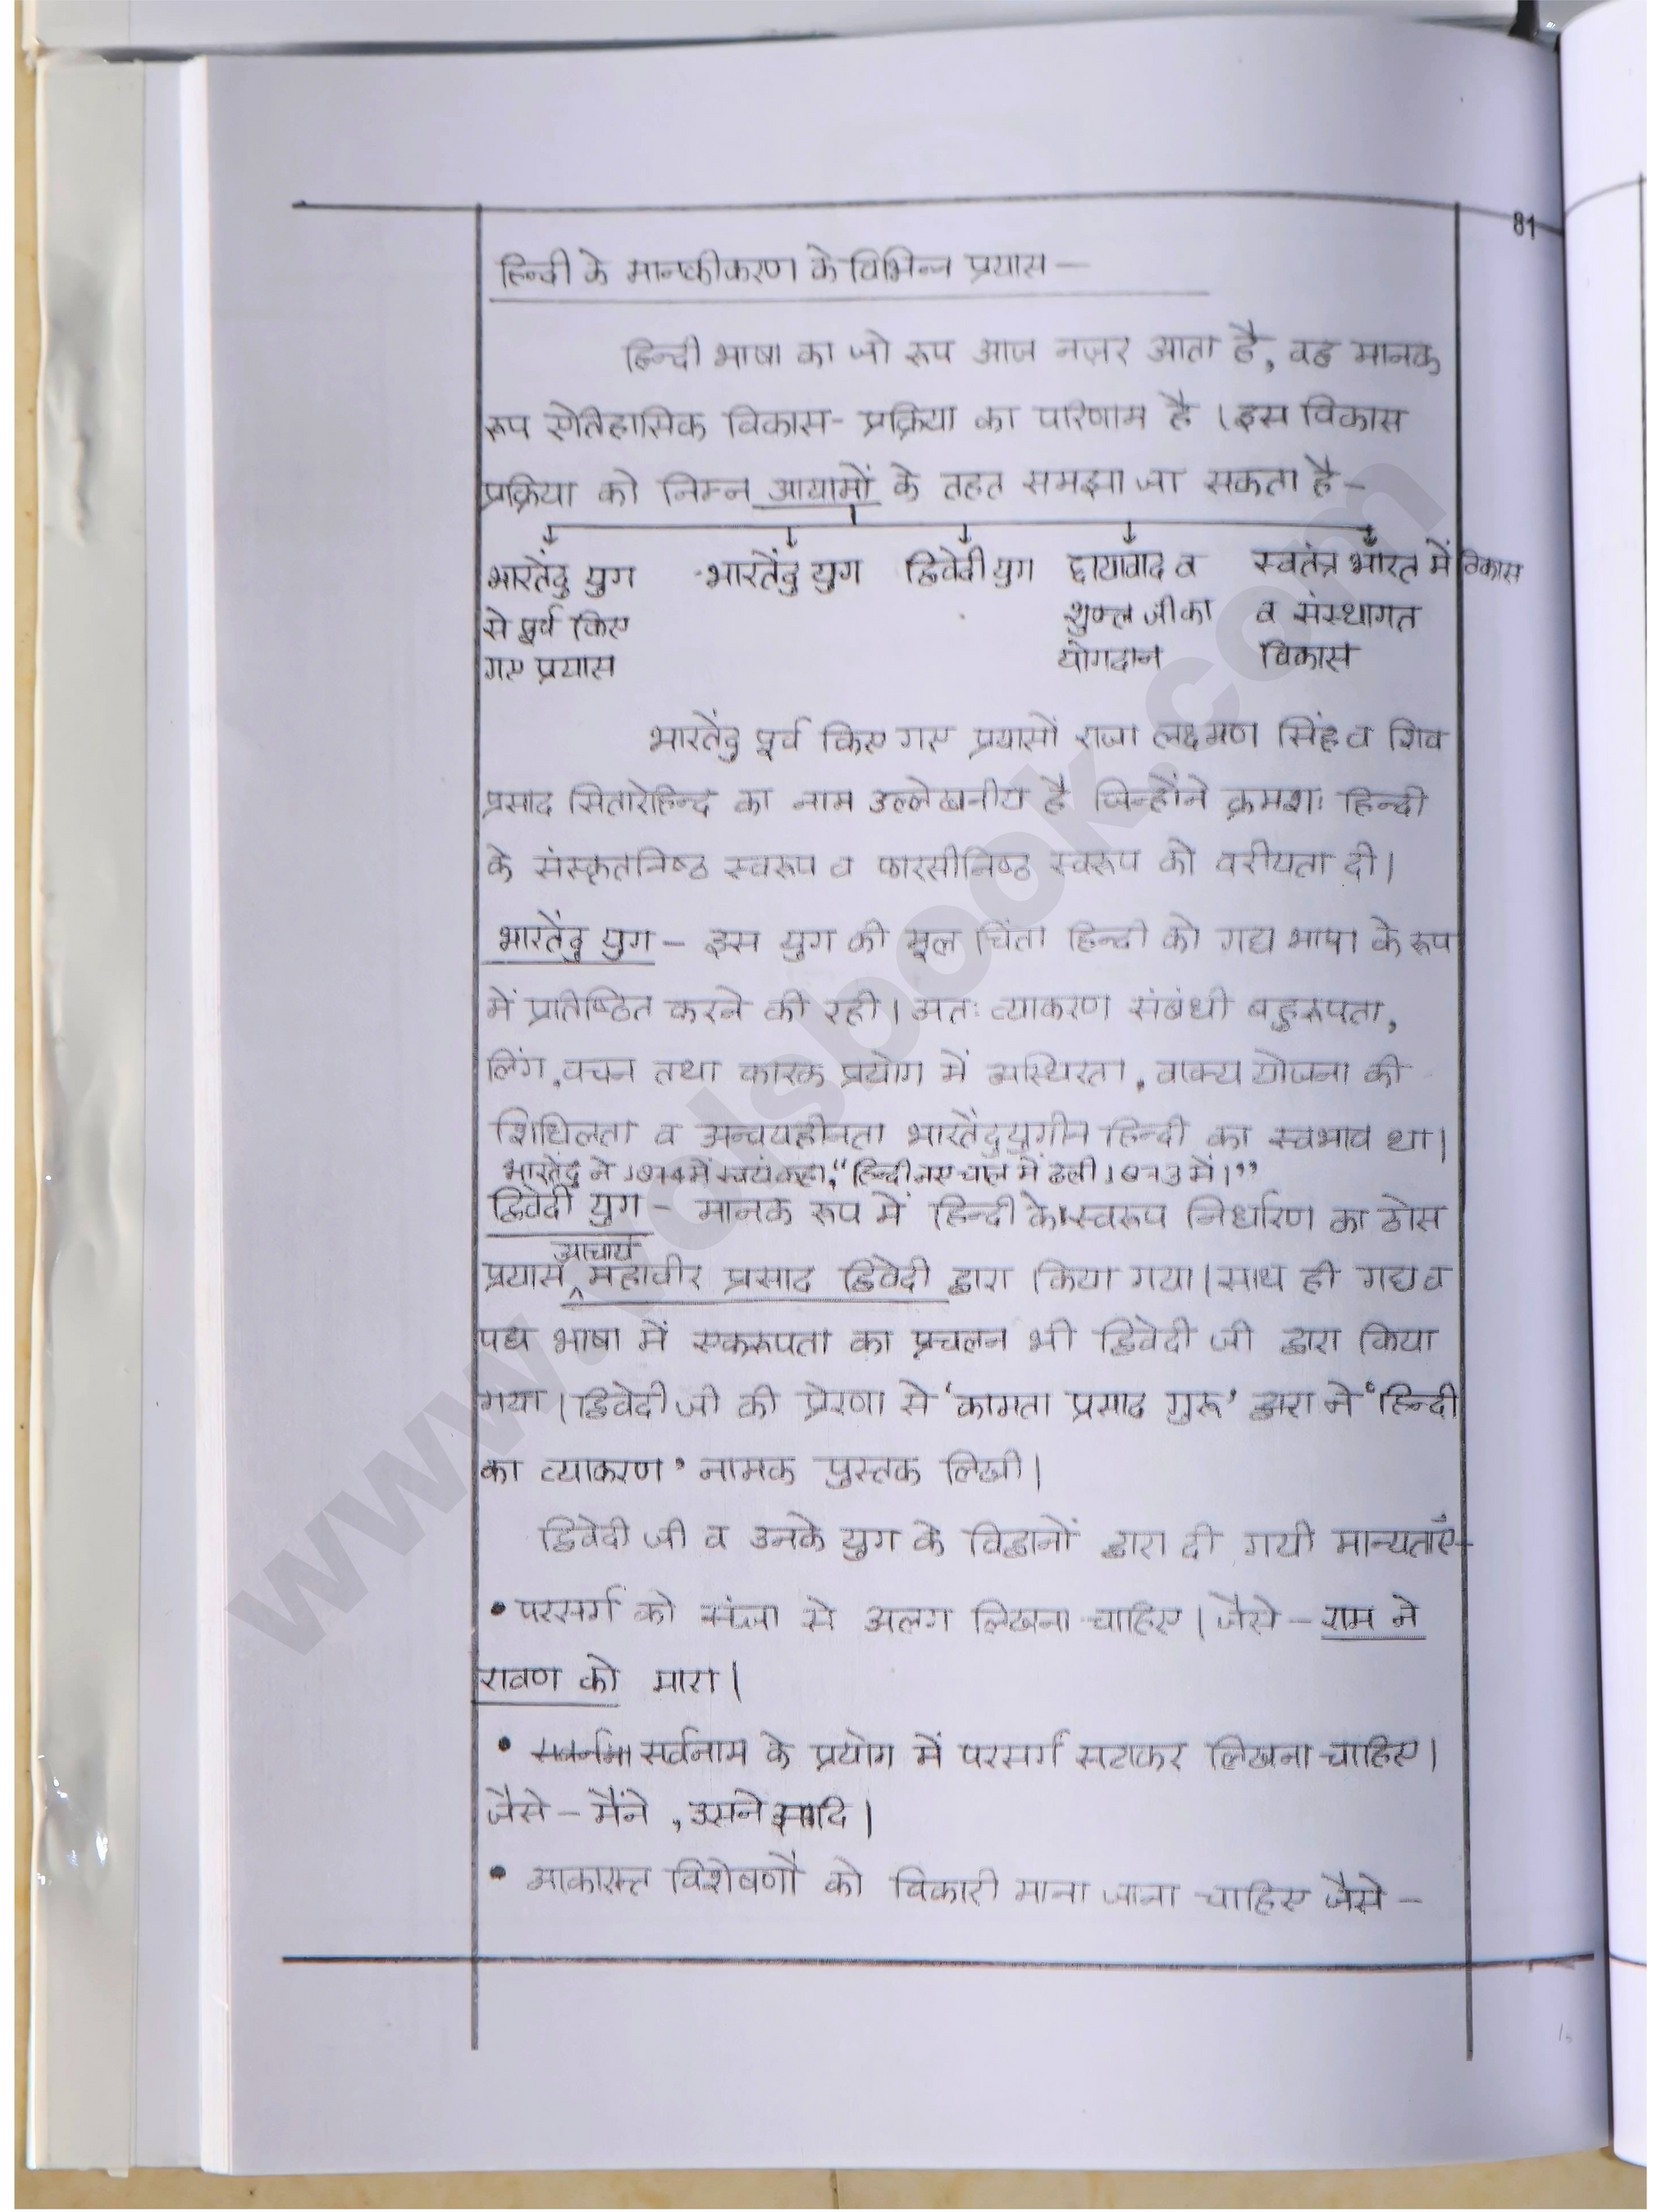 81
हिन्दी के मानकीकरण के विभिन्न प्रयास –
हिन्दी भाषा का जो रूप आज नज़र आता है, वह मानक
रूप ऐतिहासिक विकास-प्रक्रिया का परिणाम है । इस विकास
प्रक्रिया को निम्न आयामों के तहत समझा जा सकता है –
भारतेंदु युग से पूर्व किए गए प्रयास
भारतेंदु युग
द्विवेदी युग
छायावाद व शुक्ल जी का योगदान
स्वतंत्र भारत में विकास व संस्थागत विकास
भारतेंदु पूर्व किए गए प्रयासों राजा लक्ष्मण सिंह व शिव
प्रसाद सितारेहिन्द का नाम उल्लेखनीय है जिन्होंने क्रमशः हिन्दी
के संस्कृतनिष्ठ स्वरूप व फारसीनिष्ठ स्वरूप को वरीयता दी।
भारतेंदु युग – इस युग की मूल चिंता हिन्दी को गद्य भाषा के रूप
में प्रतिष्ठित करने की रही। अतः व्याकरण संबंधी बहुरूपता,
लिंग, वचन तथा कारक प्रयोग में अस्थिरता, वाक्य योजना की
शिथिलता व अन्वयहीनता भारतेंदुयुगीन हिन्दी का स्वभाव था।
भारतेंदु ने 1874 में स्वयं कहा, “हिन्दी नए चाल में ढली 1873 में।”
द्विवेदी युग – मानक रूप में हिन्दी के स्वरूप निर्धारण का ठोस
प्रयास आचार्य महावीर प्रसाद द्विवेदी द्वारा किया गया। साथ ही गद्य व
पद्य भाषा में एकरूपता का प्रचलन भी द्विवेदी जी द्वारा किया
गया। द्विवेदी जी की प्रेरणा से ‘कामता प्रसाद गुरू’ द्वारा ने ‘हिन्दी
का व्याकरण’ नामक पुस्तक लिखी।
द्विवेदी जी व उनके युग के विद्वानों द्वारा दी गयी मान्यताएँ –
• परसर्ग को संज्ञा से अलग लिखना चाहिए। जैसे – राम ने
रावण को मारा।
• सर्वनाम के प्रयोग में परसर्ग सटाकर लिखना चाहिए।
जैसे – मैंने, उसने आदि।
• आकारान्त विशेषणों को विकारी माना जाना चाहिए जैसे –